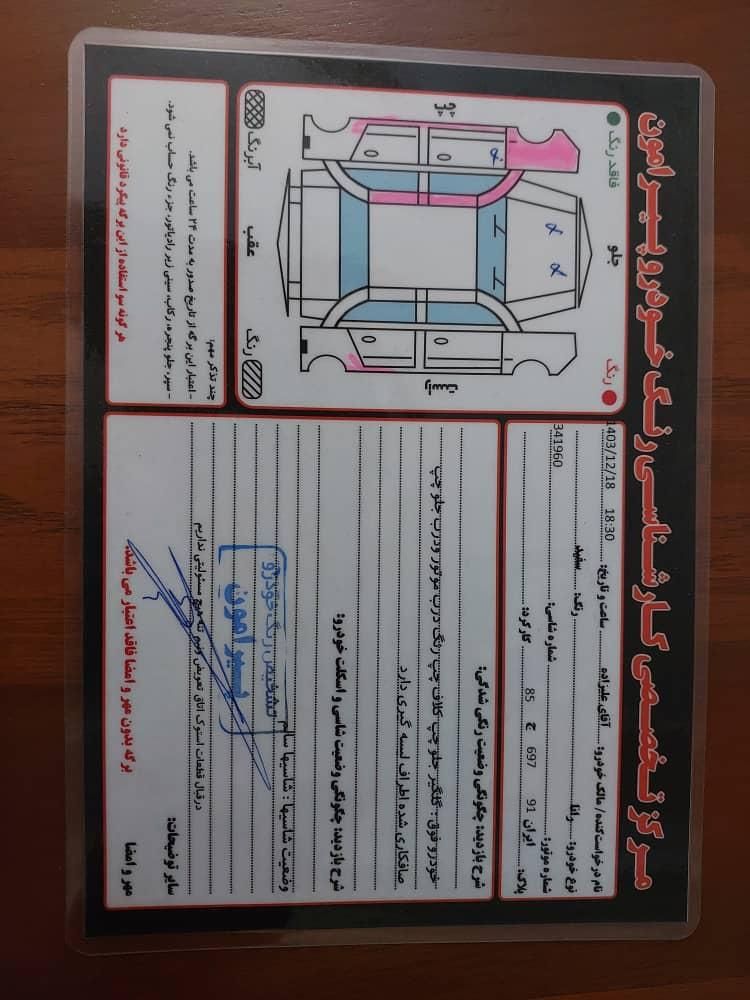 مرکز تخصصی کارشناسی رنگ خودرو پیرامون
نام درخواست کننده / مالک خودرو: آقای علیزاده ساعت و تاریخ: 18:30 1403/12/18
نوع خودرو: رانا رنگ: سفید
شماره موتور: شماره شاسی: 341960
پلاک: ایران 91 697 ج 85 کارکرد:
شرح بازدید: چگونگی وضعیت رنگی شدگی:
خودرو فوق: گلگیر جلو چپ کلاف چپ رنگ درب موتور ودرب جلو چپ
صافکاری شده اطراف لیسه گیری دارد
شرح بازدید: چگونگی وضعیت شاسی و اسکلت خودرو:
وضعیت شاسیها: شاسیها سالم
تشخیص رنگ خودرو
پیرامون
سایر توضیحات:
درقبال قطعات استوک اتاق تعویض ونیم تنه هیچ مسئولیتی نداریم
مهر و امضا
برگه بدون مهر و امضا فاقد اعتبار می باشد.
فاقد رنگ
جلو
رنگ
چپ
راست
آبرنگ
عقب
رنگ
چند تذکر مهم:
- اعتبار این برگه از تاریخ صدور به مدت ۲۴ ساعت می باشد.
- سپر، جلو پنجره، رکاب، سینی زیر رادیاتور، جزء رنگ حساب نمی شود.
هر گونه سو استفاده از این برگه پیگرد قانونی دارد